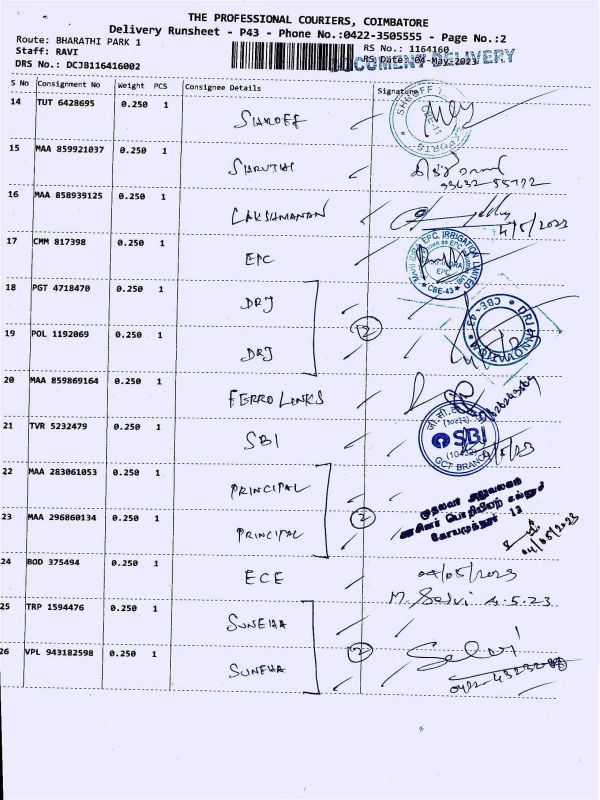 THE PROFESSIONAL COURIERS, COIMBATORE
Delivery Runsheet - P43 - Phone No.:0422-3505555 - Page No.:2
Route: BHARATHI PARK 1
RS No.: 1164160
Staff: RAVI
RS Date: 04-May-2023
DOCUMENT DELIVERY
DRS No.: DCJB116416002
S No Consignment No Weight PCS Consignee Details Signature
14 TUT 6428695 0.250 1 SHROFF
15 MAA 859921037 0.250 1 SHRUTHI
16 MAA 858939125 0.250 1 LAKSHMANAN
4/5/2023
17 CMM 817398 0.250 1 EPC
EPC IRRIGATION LIMITED
CBE-43
18 PGT 4718470 0.250 1 DRJ
2
DRJ INNOVATION
CBE - 43
19 POL 1192069 0.250 1 DRJ
20 MAA 859869164 0.250 1 FERRO LINKS
21 TVR 5232479 0.250 1 SBI
SBI
GCT BRANCH
22 MAA 283061053 0.250 1 PRINCIPAL
2
முதல்வர் அலுவலகம்
அரசினர் பொறியியற் கல்லூரி
கோயமுத்தூர் 13
23 MAA 296860134 0.250 1 PRINCIPAL
04/05/2023
24 BOD 375494 0.250 1 ECE
04/05/2023
M. Selvi 4.5.23
25 TRP 1594476 0.250 1 SUNEHA
2
26 VPL 943182598 0.250 1 SUNEHA
Selvi